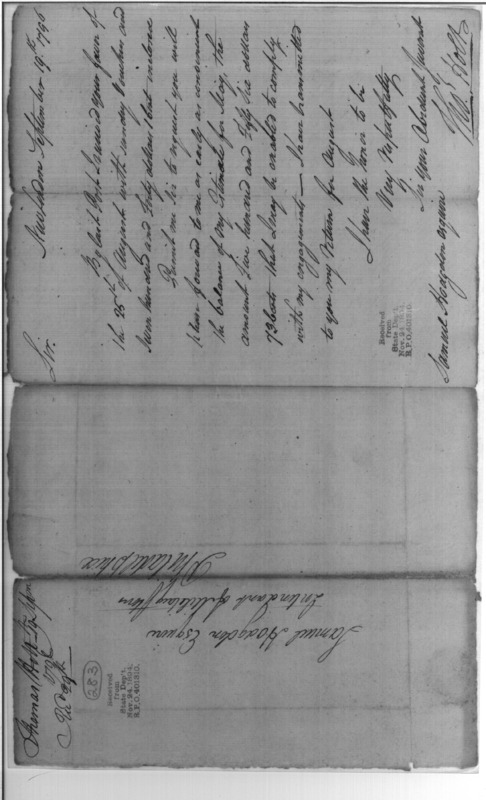 New London September 19th. 1796
Sir.
By last Post I received your favour of
the 25th. of August with sundry Vouchers and
Seven hundred and Sixty dollars Post inclosed
Permit me Sir to request you will
please forward to me as early as convenient
the balance of my Estimate for May, the
amount Five hundred and Fifty Six dollars
73 Cents that I may be enabled to comply
with my engagements — I have transmitted
to you my Return for August
I have the honor to be
Very Respectfully
Sir your Obedient Servant
Thos. Holt
Samuel Hodgdon esquire
Received
from
State Dep't.
Nov. 24, 1894.
R.P.O. 401810.
Philadelphia
Samuel Hodgdon Esquire
Intendant of Military Stores
Thomas Holt
283
Received
from
State Dep't.
Nov. 24, 1894.
R.P.O. 401810.